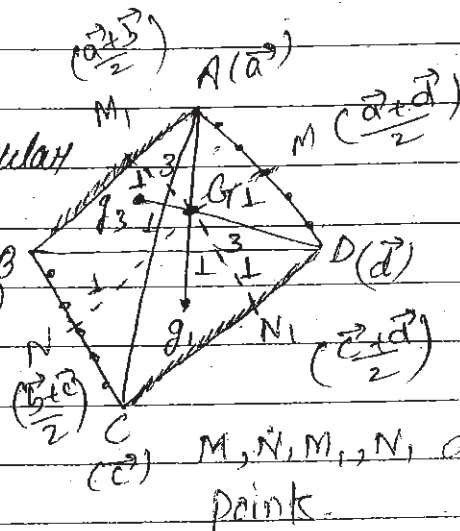 (a⃗+b⃗)/2
A(a⃗)
M₁
M (a⃗+d⃗)/2
ular
3
1
G 1
g₃ 1
3
B
D(d⃗)
1
1 1
N
g₁
N₁
(b⃗+c⃗)/2
(c⃗+d⃗)/2
C
(c⃗)
M, N, M₁, N₁
point.